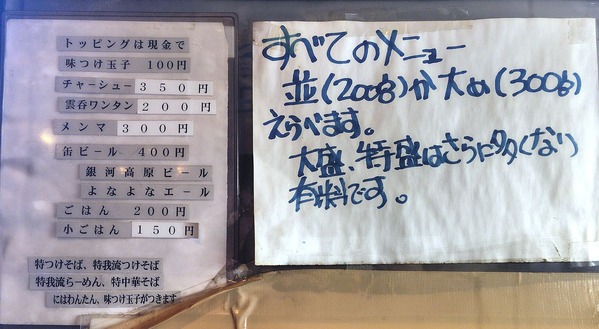 トッピングは現金で
味つけ玉子 100円
チャーシュー 350円
雲呑ワンタン 200円
メンマ 300円
缶ビール 400円
銀河高原ビール
よなよなエール
ごはん 200円
小ごはん 150円
特つけそば、特我流つけそば
特我流らーめん、特中華そば
にはわんたん、味つけ玉子がつきます
すべてのメニュー
並(200g)か大め(300g)
えらべます。
大盛、特盛はさらに多くなり
有料です。